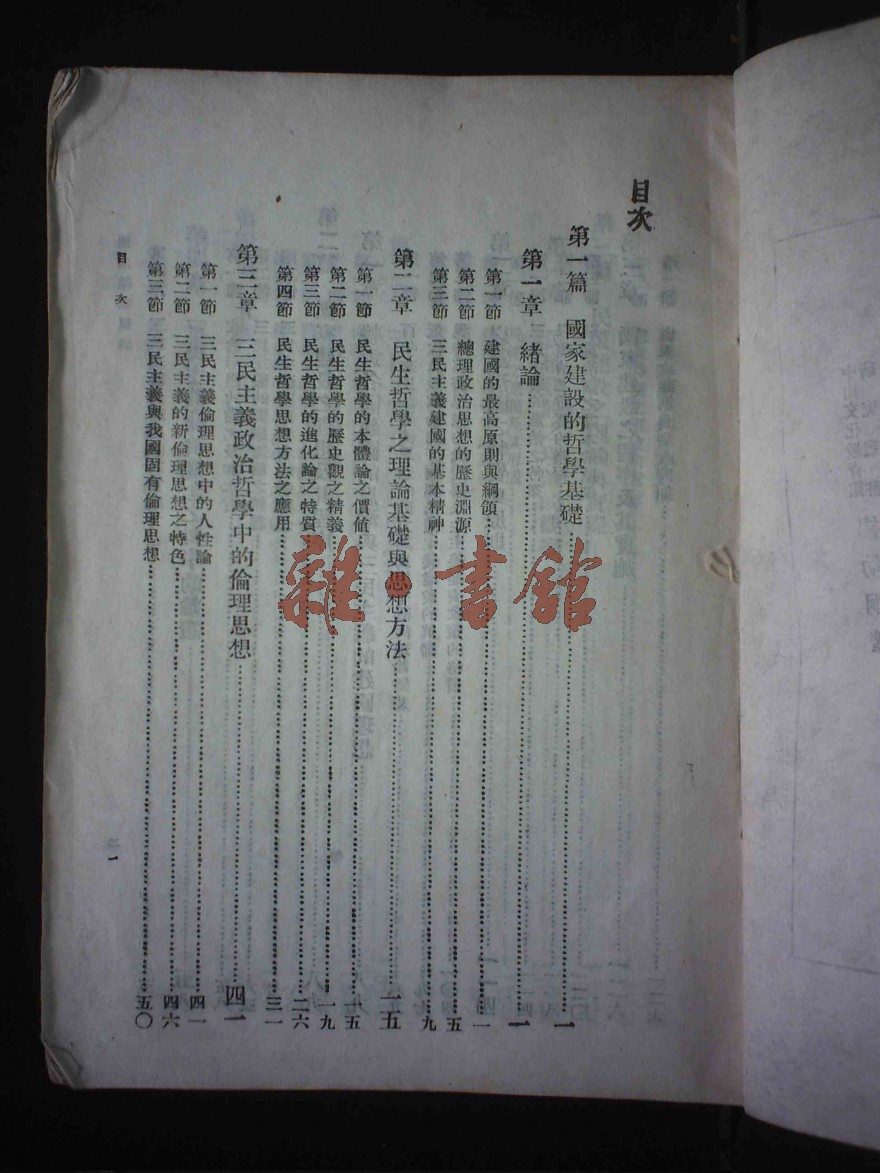 目次
第一篇 國家建設的哲學基礎 一
第一章 緒論 一
第一節 建國的最高原則與綱領 一
第二節 總理政治思想的歷史淵源 五
第三節 三民主義建國的基本精神 九
第二章 民生哲學之理論基礎與思想方法 一五
第一節 民生哲學的本體論之價値 一五
第二節 民生哲學的歷史觀之精義 一九
第三節 民生哲學的進化論之特質 二六
第四節 民生哲學思想方法之應用 三一
第三章 三民主義政治哲學中的倫理思想 四一
第一節 三民主義倫理思想中的人性論 四一
第二節 三民主義的新倫理思想之特色 四六
第三節 三民主義與我國固有倫理思想 五〇
目次 一
雜書館